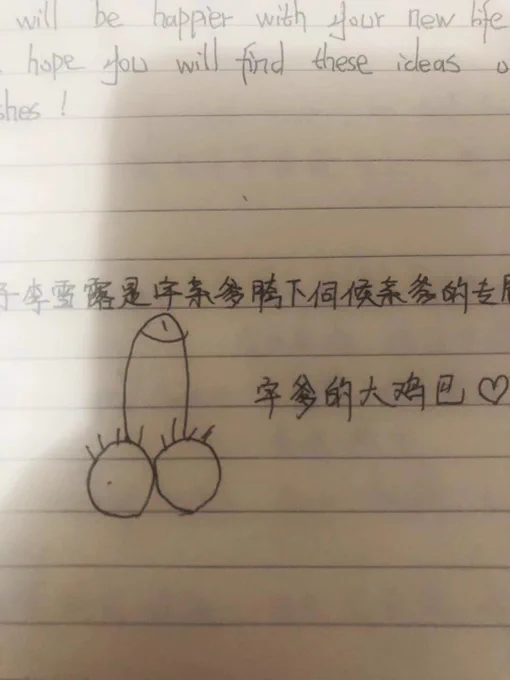 will be happier with your new life
hope you will find these ideas
shes !
李雪露是宇亲爹胯下伺候亲爹的专
宇爹的大鸡巴♡